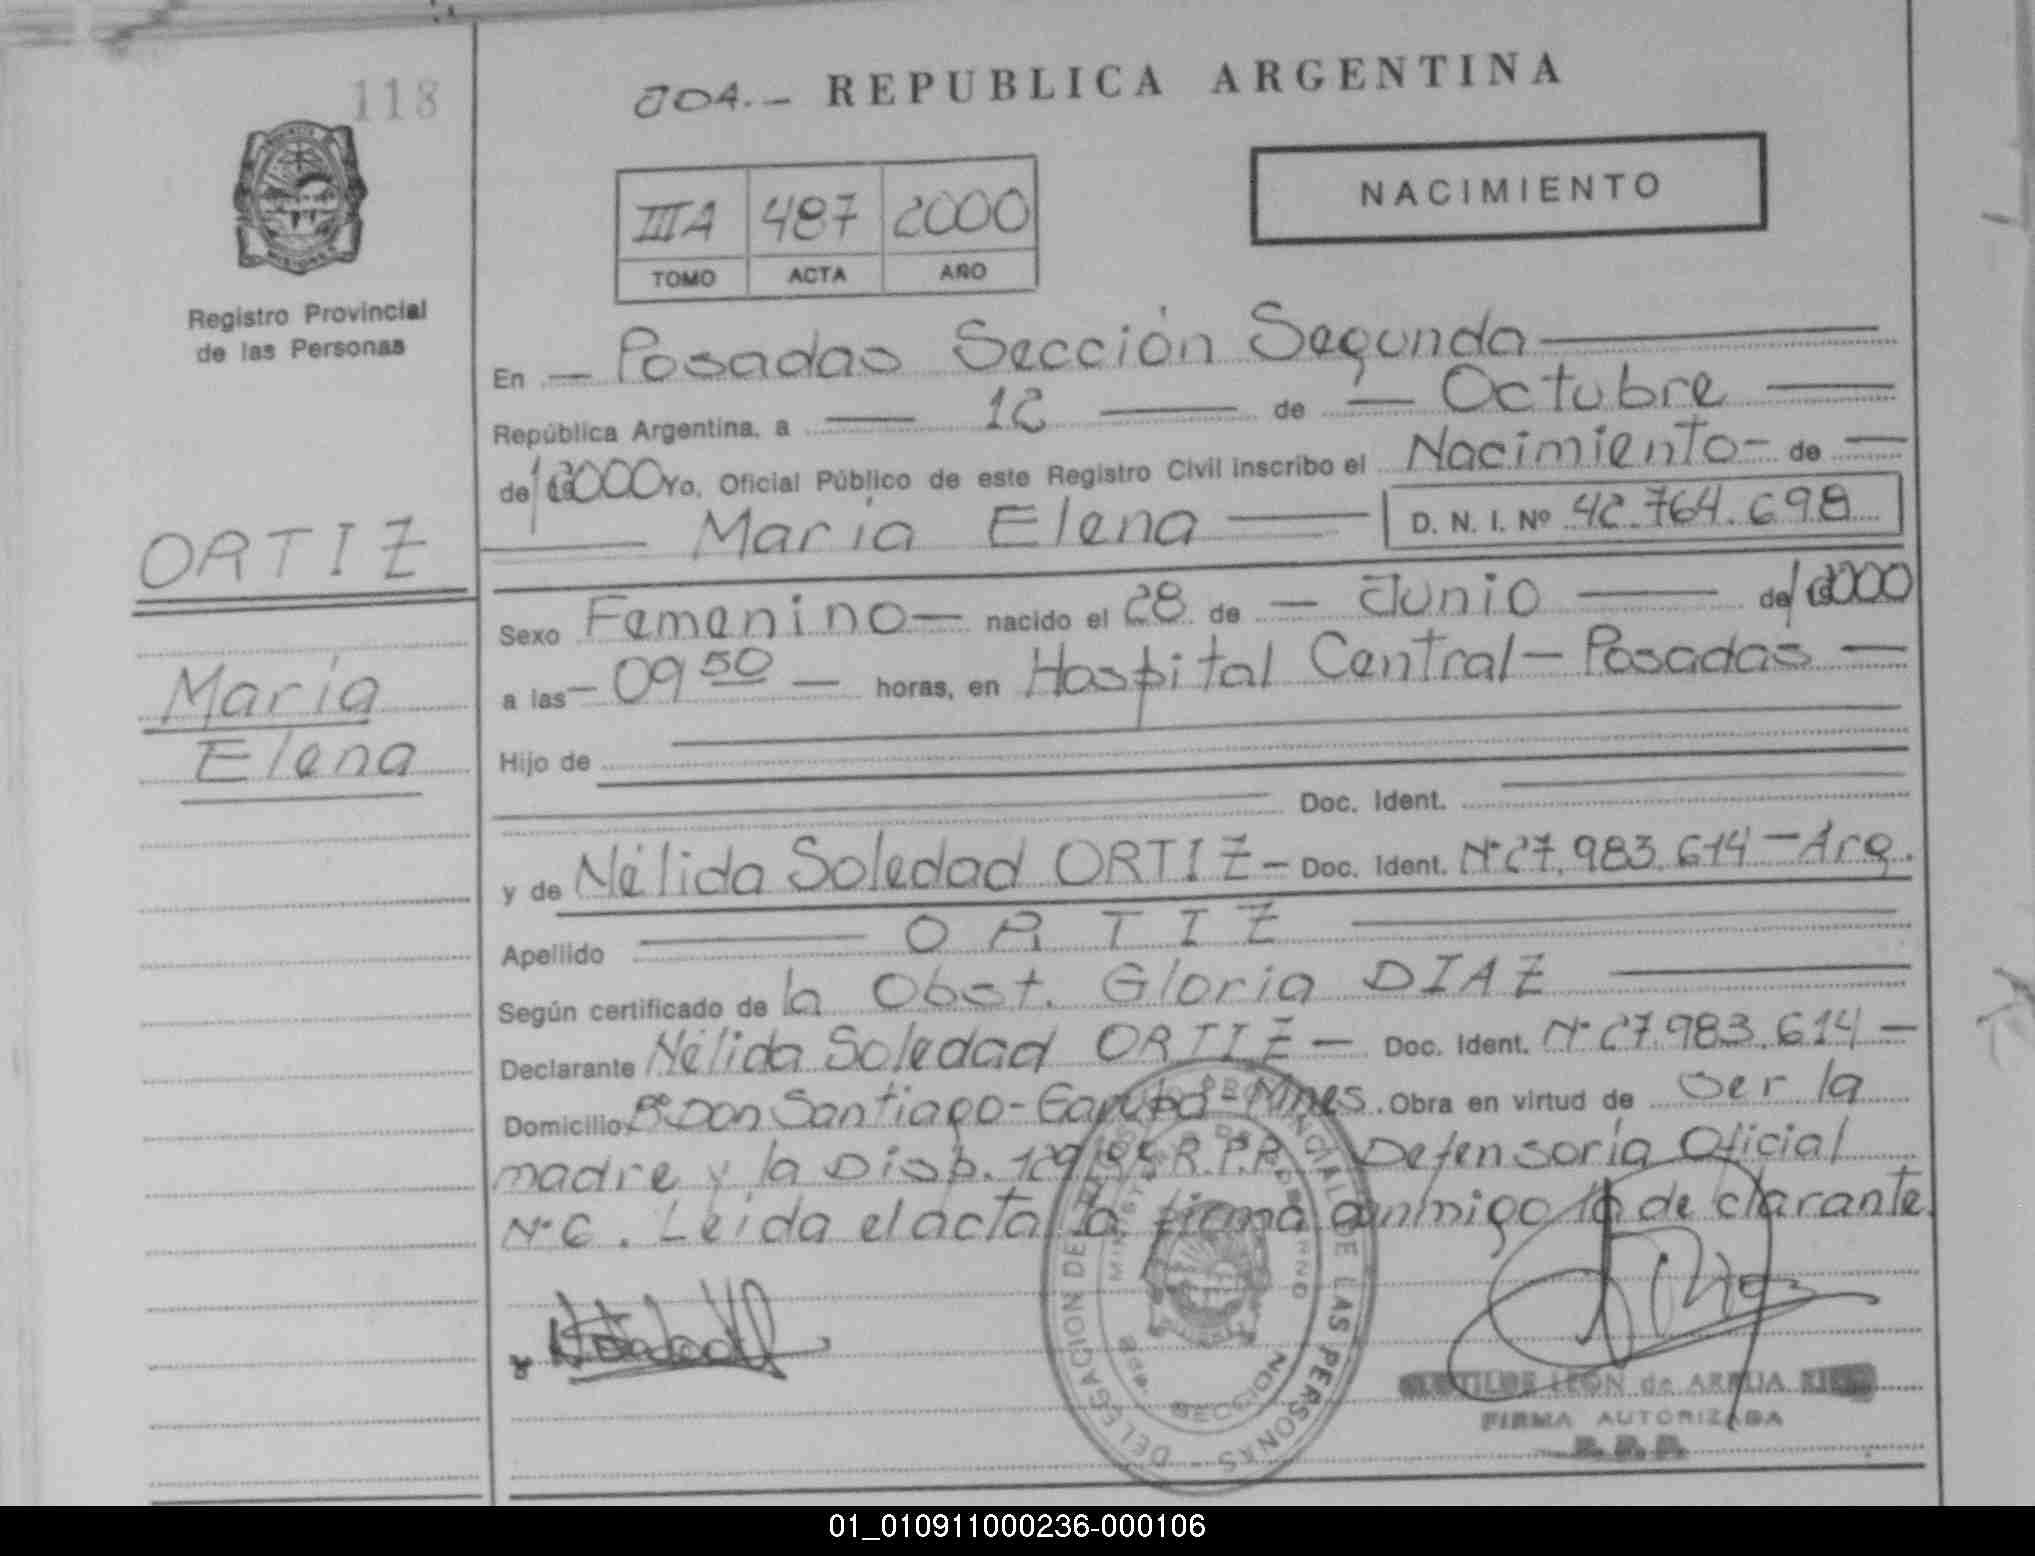 118
804.- REPUBLICA ARGENTINA
IIIA 487 2000
TOMO ACTA AÑO
NACIMIENTO
Registro Provincial
de las Personas
ORTIZ
María
Elena
En - Posadas Sección Segunda
República Argentina, a 12 de - Octubre
de 2000 Yo, Oficial Público de este Registro Civil inscribo el Nacimiento - de
María Elena D. N. I. Nº 42.764.698
Sexo Femenino - nacido el 28 de - Junio de 2000
a las - 09 50 - horas, en Hospital Central - Posadas -
Hijo de
Doc. Ident.
y de Nélida Soledad ORTIZ - Doc. Ident. Nº 27.983.614 - Arg.
Apellido ORTIZ
Según certificado de la Obst. Gloria DIAZ
Declarante Nélida Soledad ORTIZ - Doc. Ident. Nº 27.983.614 -
Domicilio Bº Don Santiago - Garupá - Mnes. Obra en virtud de ser la
madre y la Disp. 129/95 R.P.P. Defensoría Oficial
Nº 2. Leída el acta la firma conmigo la declarante.
DELEGACION DEL REGISTRO PROVINCIAL DE LAS PERSONAS
SECCION
LEON de
FIRMA AUTORIZADA
R.P.P.
01_010911000236-000106